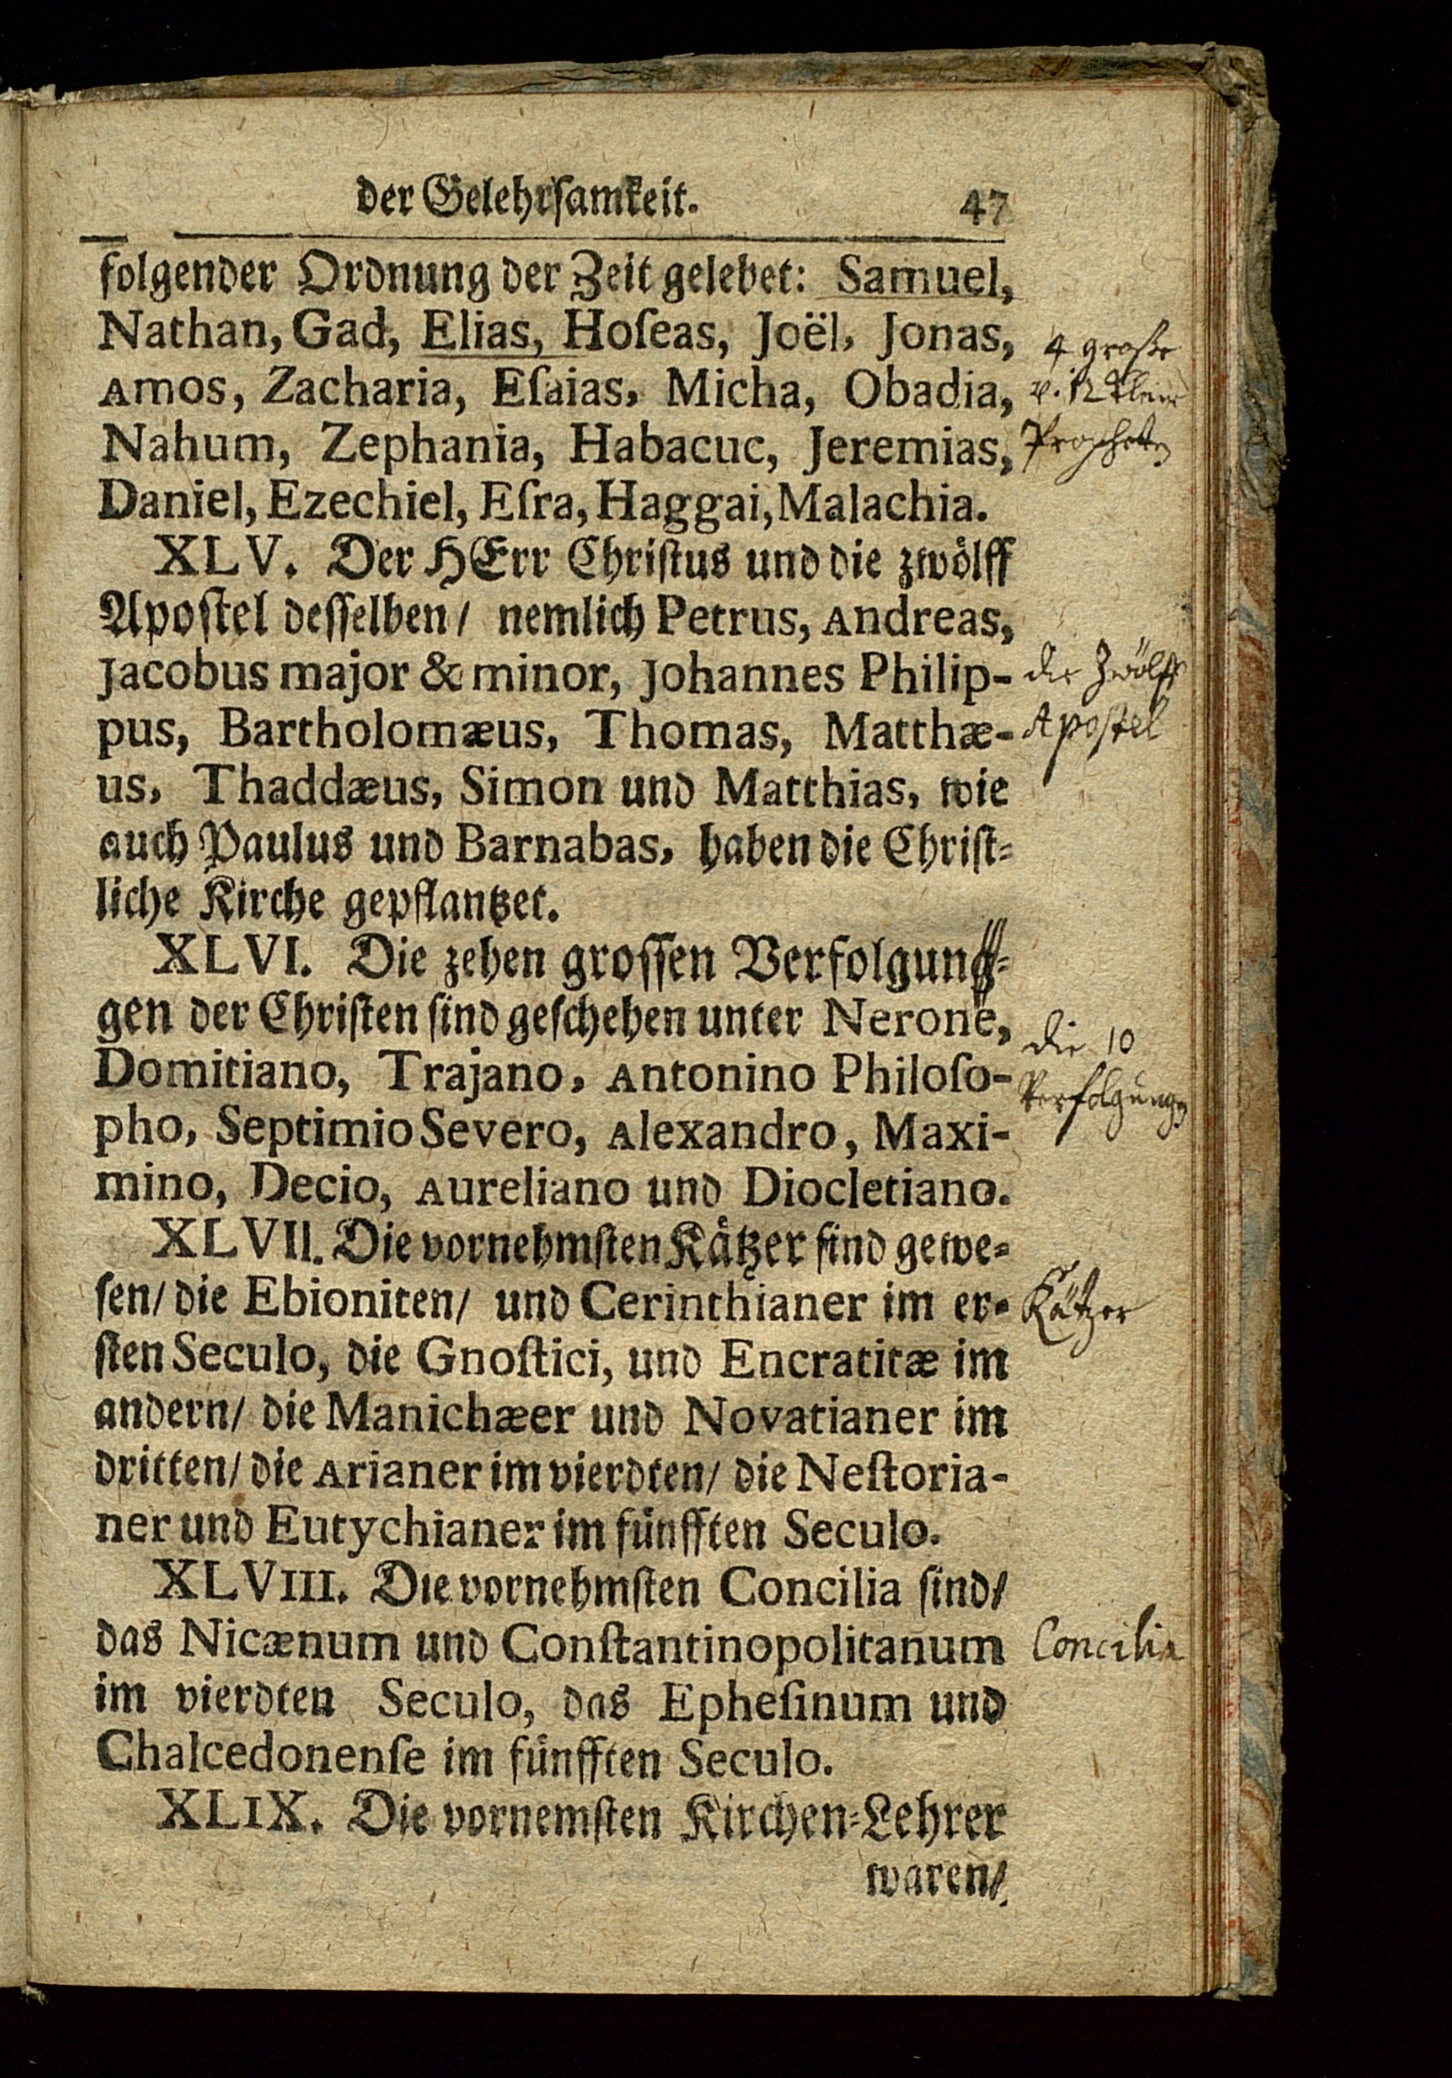 der Gelehrsamkeit. 47
folgender Ordnung der Zeit gelebet: Samuel,
Nathan, Gad, Elias, Hoſeas, Joël, Jonas,
Amos, Zacharia, Eſaias, Micha, Obadia,
Nahum, Zephania, Habacuc, Jeremias,
Daniel, Ezechiel, Eſra, Haggai, Malachia.
4 große
u. 12 kleine
Propheten
XLV. Der HErr Chriſtus und die zwölff
Apoſtel deſſelben/ nemlich Petrus, Andreas,
Jacobus major & minor, Johannes Philip-
pus, Bartholomæus, Thomas, Matthæ-
us, Thaddæus, Simon und Matthias, wie
auch Paulus und Barnabas, haben die Chriſt-
liche Kirche gepflantzet.
die Zwölff
Apoſtel
XLVI. Die zehen groſſen Verfolgun-
gen der Chriſten ſind geſchehen unter Nerone,
Domitiano, Trajano, Antonino Philoſo-
pho, Septimio Severo, Alexandro, Maxi-
mino, Decio, Aureliano und Diocletiano.
die 10
Verfolgungen
XLVII. Die vornehmſten Kätzer ſind gewe-
ſen/ die Ebioniten/ und Cerinthianer im er-
ſten Seculo, die Gnoſtici, und Encratitæ im
andern/ die Manichæer und Novatianer im
dritten/ die Arianer im vierdten/ die Neſtoria-
ner und Eutychianer im fünfften Seculo.
Kätzer
XLVIII. Die vornehmſten Concilia ſind/
das Nicænum und Conſtantinopolitanum
im vierdten Seculo, das Epheſinum und
Chalcedonenſe im fünfften Seculo.
Concilia
XLIX. Die vornemſten Kirchen-Lehrer
waren/